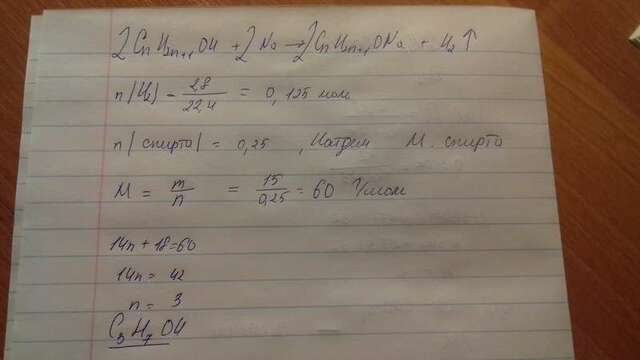 2CnH2n+1OH + 2Na → 2CnH2n+1ONa + H2↑
n(H2) = 2,8/22,4 = 0,125 моль
n(спирта) = 0,25, Найдём M спирта
M = m/n = 15/0,25 = 60 г/моль
14n + 18 = 60
14n = 42
n = 3
C3H7OH